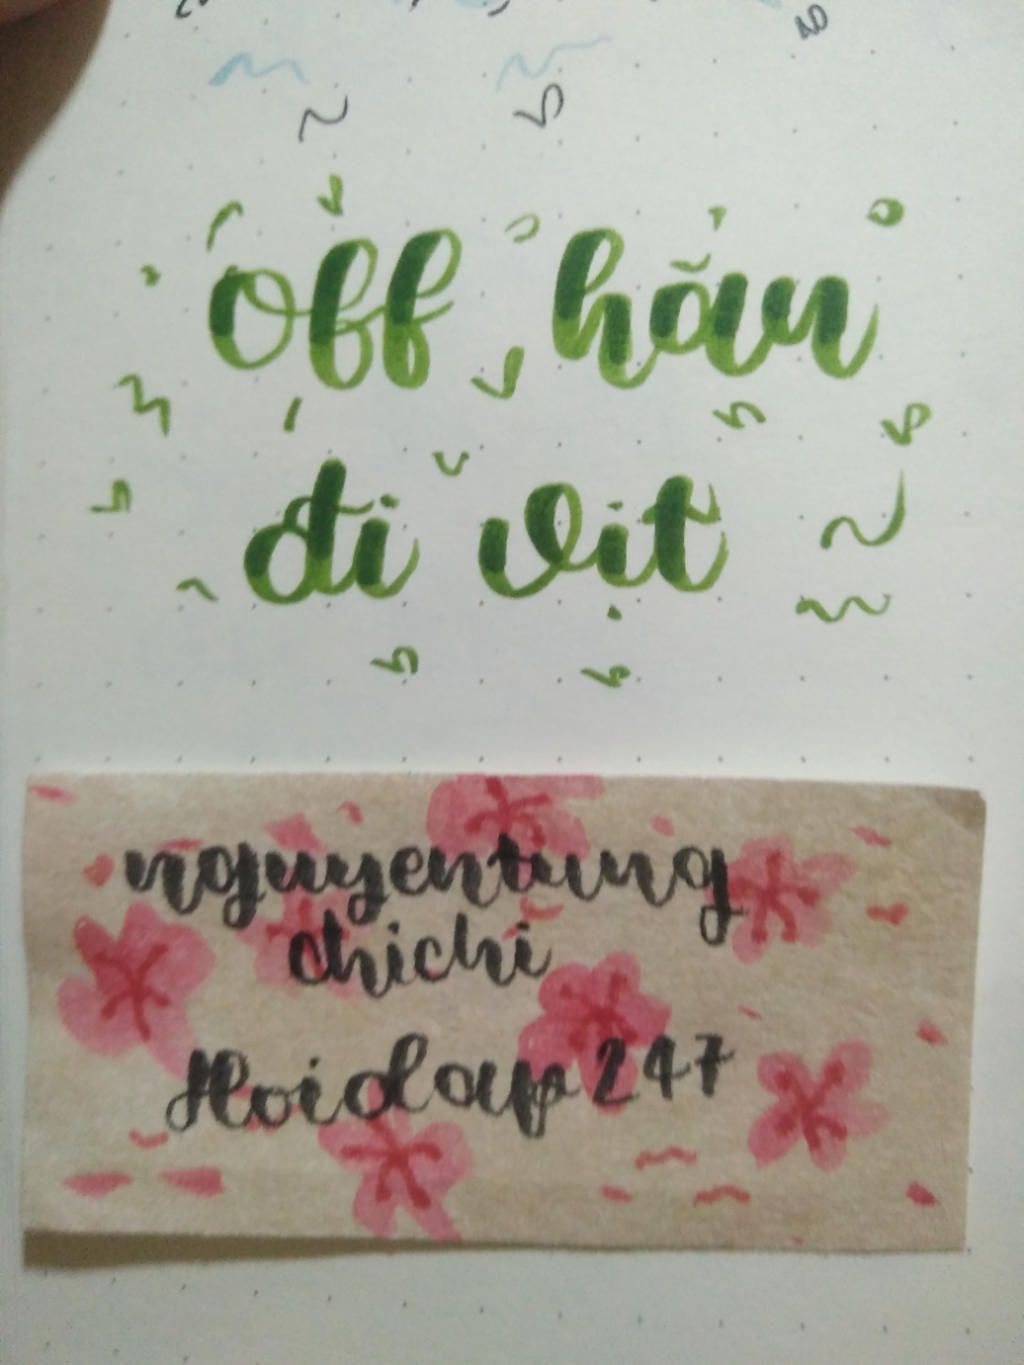 Off hẳn
đi vịt
nguyentung
chichi
Hoidap247